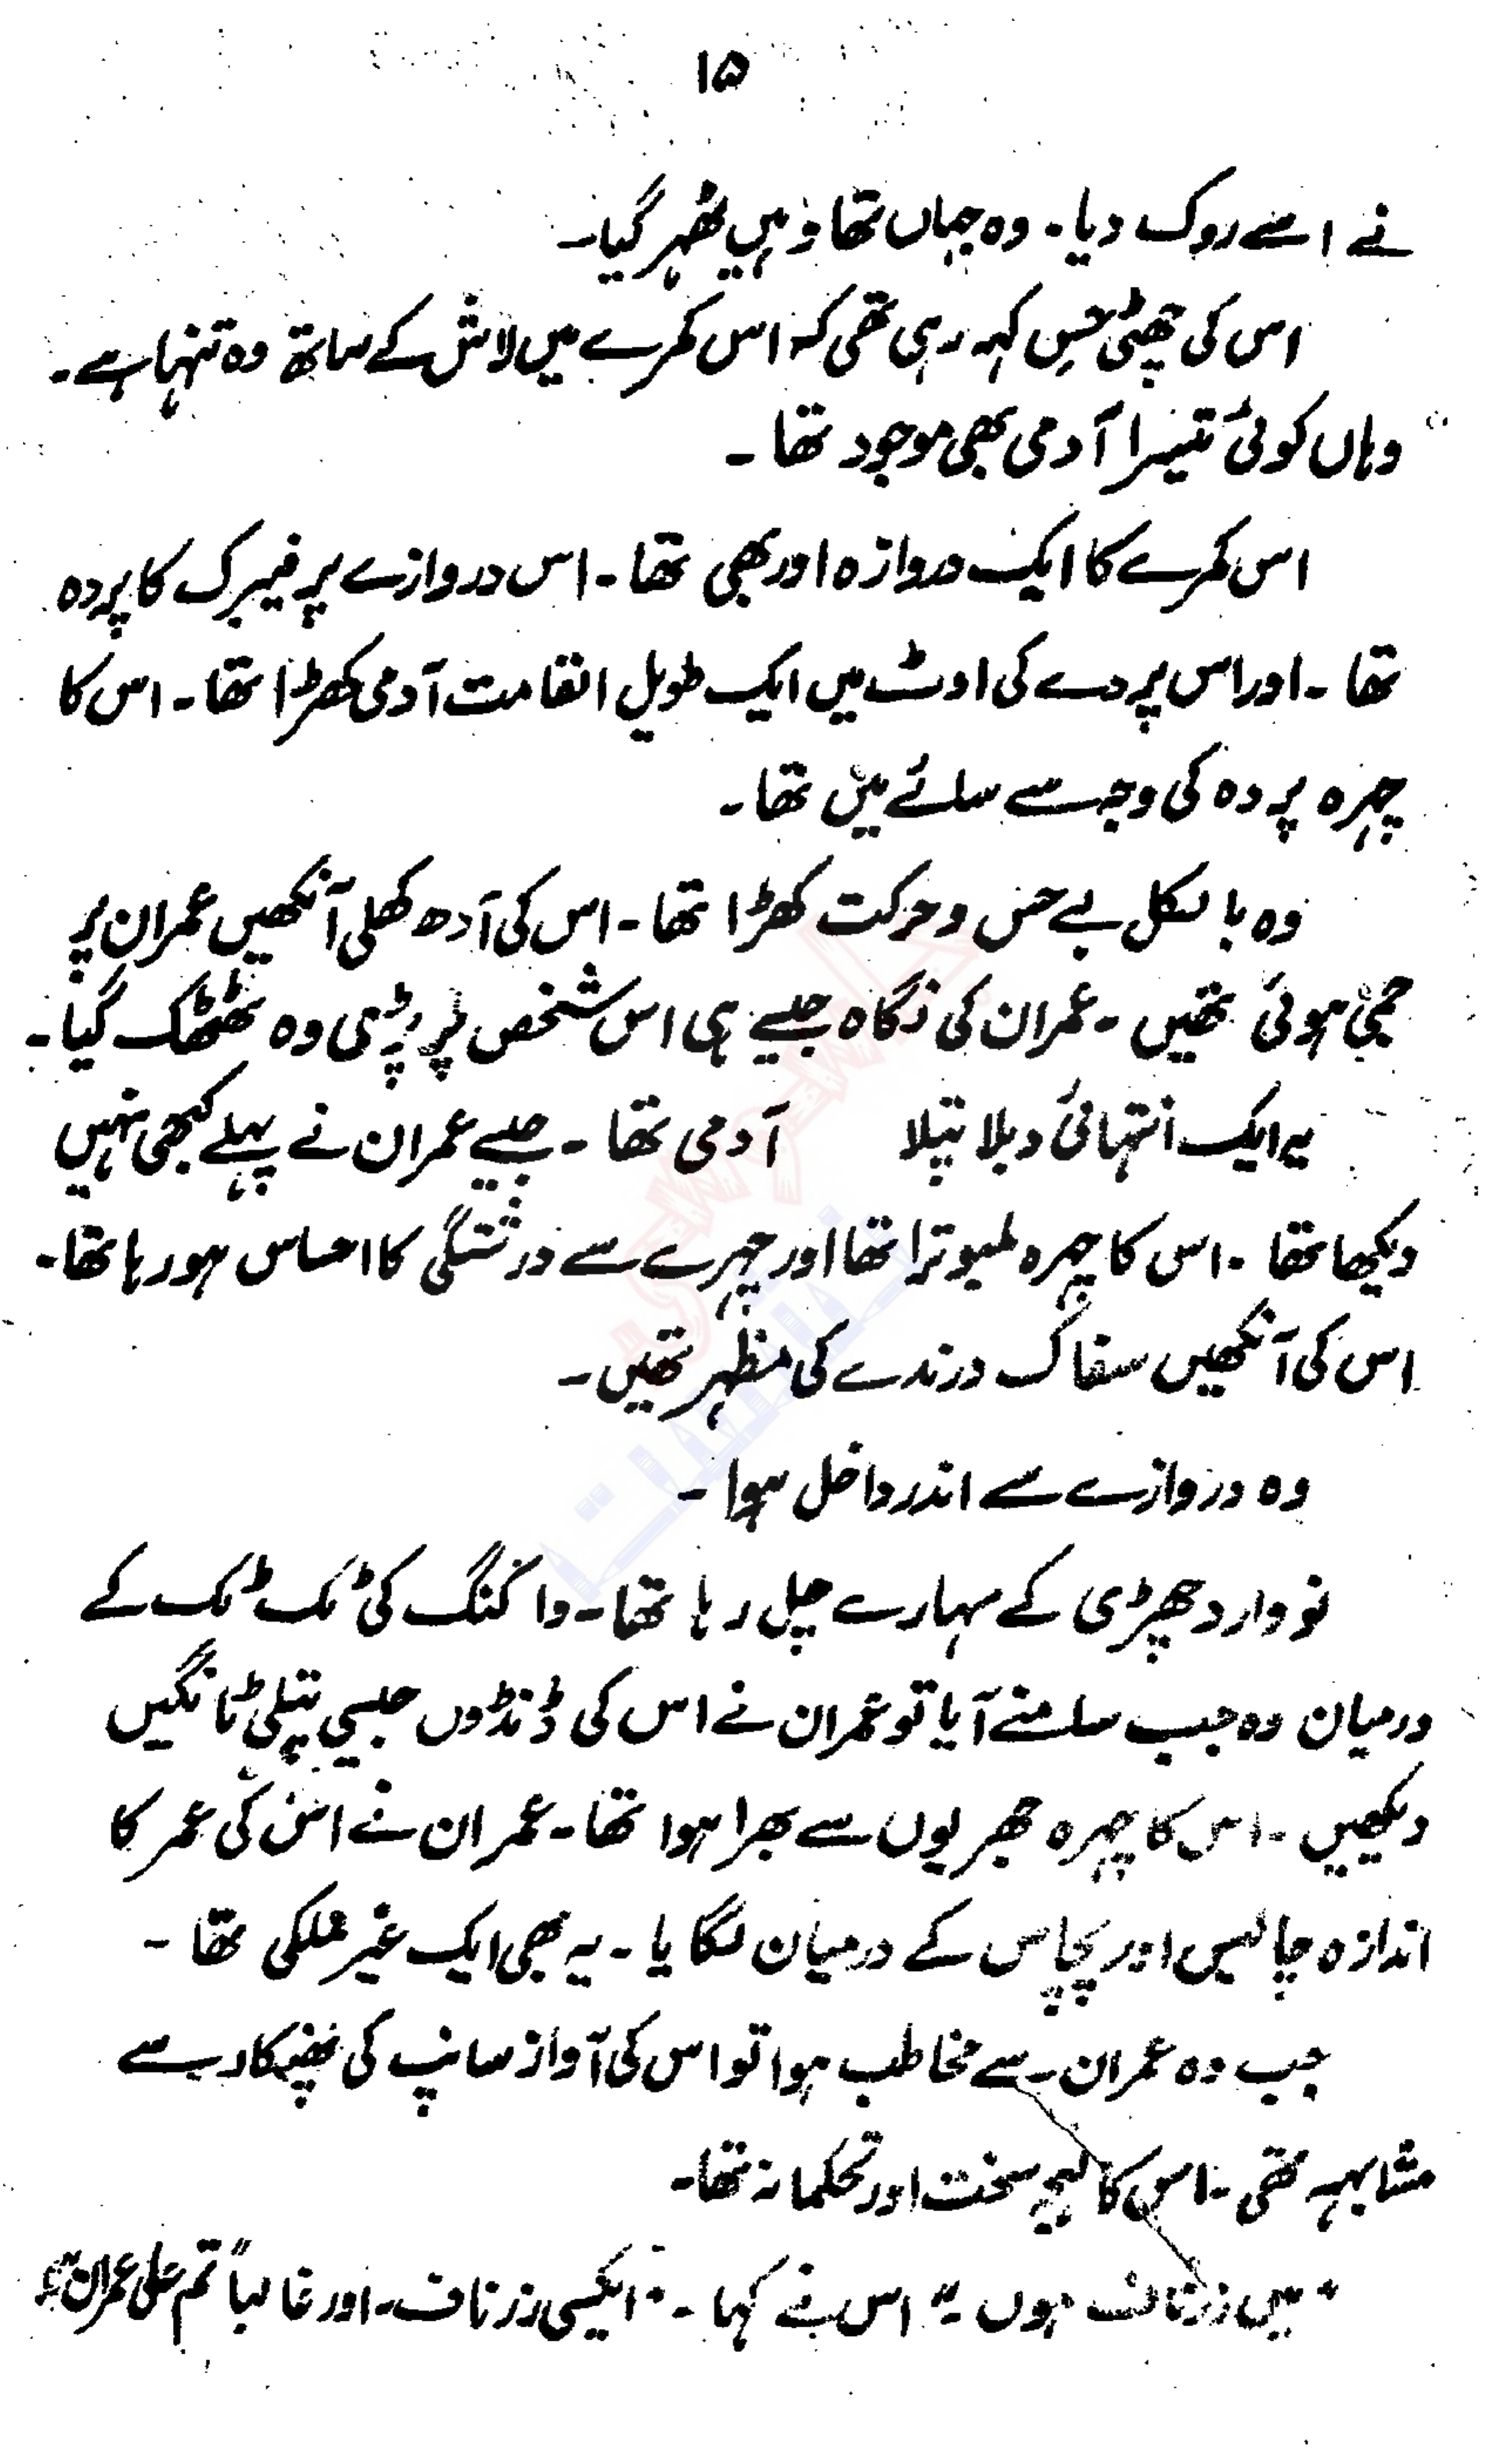 ۱۵
نے اسے روک دیا۔ وہ جہاں تھا وہیں ٹھہر گیا۔
اس کی چھٹی حس کہہ رہی تھی کہ اس کمرے میں لاش کے ساتھ وہ تنہا ہے۔
وہاں کوئی تیسرا آدمی بھی موجود تھا۔
اس کمرے کا ایک دروازہ اور بھی تھا۔ اس دروازے پر فیبرک کا پردہ
تھا۔ اور اس پردے کی اوٹ میں ایک طویل القامت آدمی کھڑا تھا۔ اس کا
چہرہ پردہ کی وجہ سے سائے میں تھا۔
وہ بالکل بے حس و حرکت کھڑا تھا۔ اس کی آدھ کھلی آنکھیں عمران پر
جمی ہوئی تھیں۔ عمران کی نگاہ جیسے ہی اس شخص پر پڑی وہ ٹھٹھک گیا۔
یہ ایک انتہائی دبلا پتلا آدمی تھا۔ جسے عمران نے پہلے کبھی نہیں
دیکھا تھا۔ اس کا چہرہ لمبوترا تھا اور چہرے سے درشتگی کا احساس ہو رہا تھا۔
اس کی آنکھیں سفاک درندے کی مظہر تھیں۔
وہ دروازے سے اندر داخل ہوا۔
نووارد چھڑی کے سہارے چل رہا تھا۔ واکنگ کی ٹک ٹک کے
درمیان وہ جب سامنے آیا تو عمران نے اس کی ڈنڈوں جیسی پتلی ٹانگیں
دیکھیں۔ اس کا چہرہ جھریوں سے بھرا ہوا تھا۔ عمران نے اس کی عمر کا
اندازہ چالیس اور پچاس کے درمیان لگایا۔ یہ بھی ایک غیر ملکی تھا۔
جب وہ عمران سے مخاطب ہوا تو اس کی آواز سانپ کی پھنکار سے
مشابہہ تھی۔ اس کا لہجہ سخت اور تحکمانہ تھا۔
"میں زرناف ہوں۔" اس نے کہا۔ "ایکسی زرناف۔ اور غالباً تم علی عمران